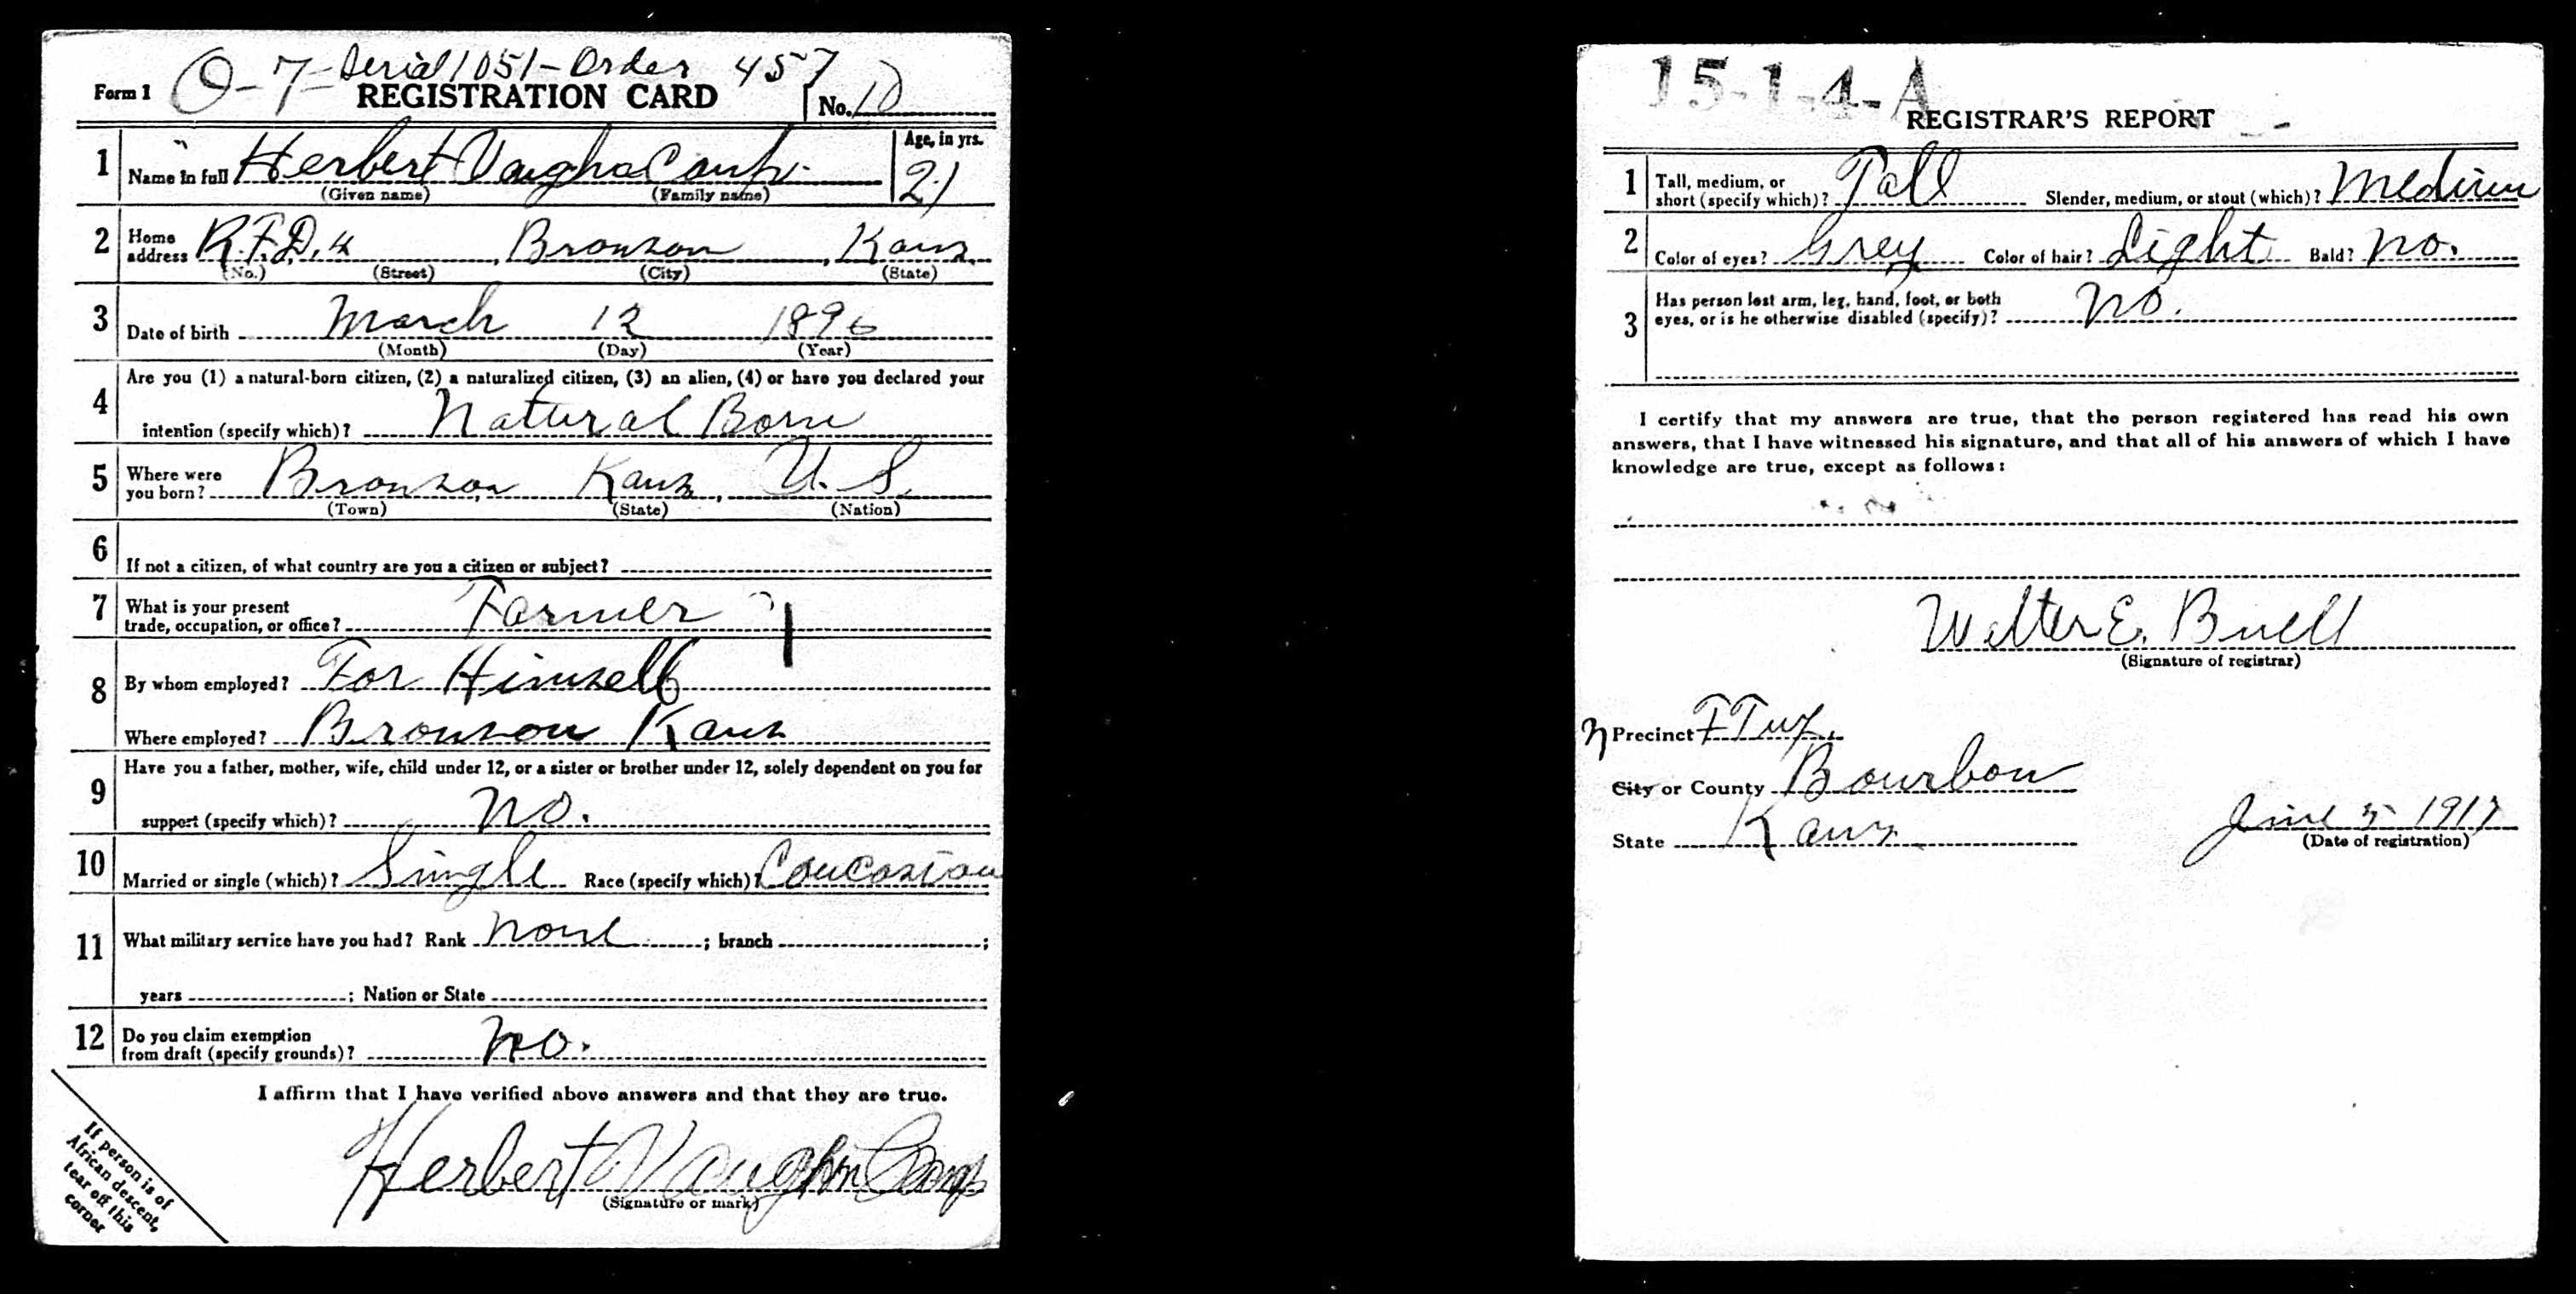 O-7- Serial 1051 - Order 457
Form 1 REGISTRATION CARD No. 10
1 Name in full Herbert Vaughn Camp. Age, in yrs. 21
(Given name) (Family name)
2 Home address R.F.D. 4, Bronson, Kans.
(No.) (Street) (City) (State)
3 Date of birth March 12 1896
(Month) (Day) (Year)
4 Are you (1) a natural-born citizen, (2) a naturalized citizen, (3) an alien, (4) or have you declared your
intention (specify which)? Natural Born
5 Where were you born? Bronson Kans, U. S.
(Town) (State) (Nation)
6 If not a citizen, of what country are you a citizen or subject?
7 What is your present
trade, occupation, or office? Farmer
8 By whom employed? For Himself
Where employed? Bronson Kans
9 Have you a father, mother, wife, child under 12, or a sister or brother under 12, solely dependent on you for
support (specify which)? No.
10 Married or single (which)? Single Race (specify which)? Caucasian
11 What military service have you had? Rank None ; branch ;
years ; Nation or State
12 Do you claim exemption
from draft (specify grounds)? No.
I affirm that I have verified above answers and that they are true.
Herbert Vaughn Camp
(Signature or mark)
If person is of
African descent,
tear off this
corner
15-1-4-A
REGISTRAR'S REPORT
1 Tall, medium, or
short (specify which)? Tall Slender, medium, or stout (which)? Medium
2 Color of eyes? Grey Color of hair? Light Bald? No.
3 Has person lost arm, leg, hand, foot, or both
eyes, or is he otherwise disabled (specify)? No.
I certify that my answers are true, that the person registered has read his own
answers, that I have witnessed his signature, and that all of his answers of which I have
knowledge are true, except as follows:
Walter E. Buell
(Signature of registrar)
Precinct
City or County Bourbon
State Kans. June 5 1917
(Date of registration)